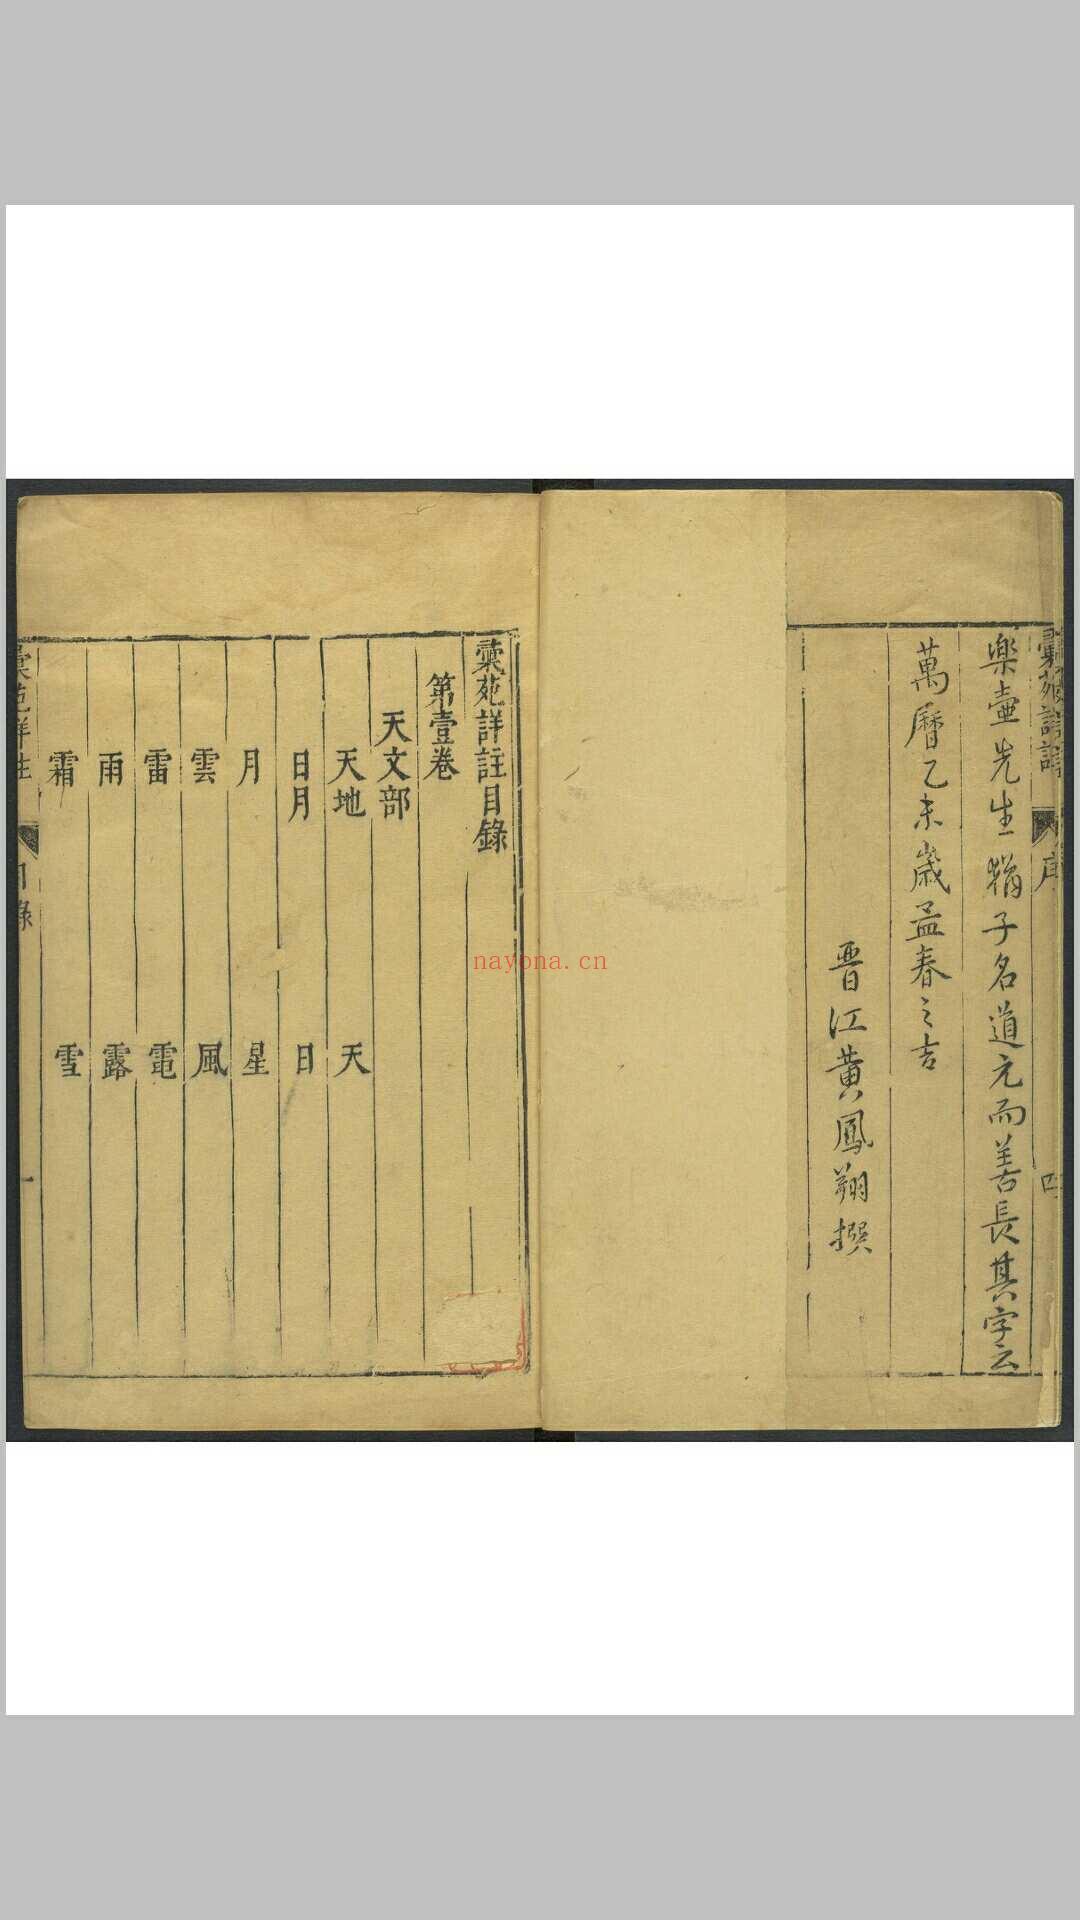 彙苑詳註
序
四
樂壺先生猶子名道元而善長其字云
萬曆乙未歲孟春之吉
晋江黄鳳翔撰
nayona.cn
彙苑詳註目錄
第壹卷
天文部
天地 天
日月 日
月 星
雲 風
雷 電
雨 露
霜 雪
彙苑詳註
目錄
一